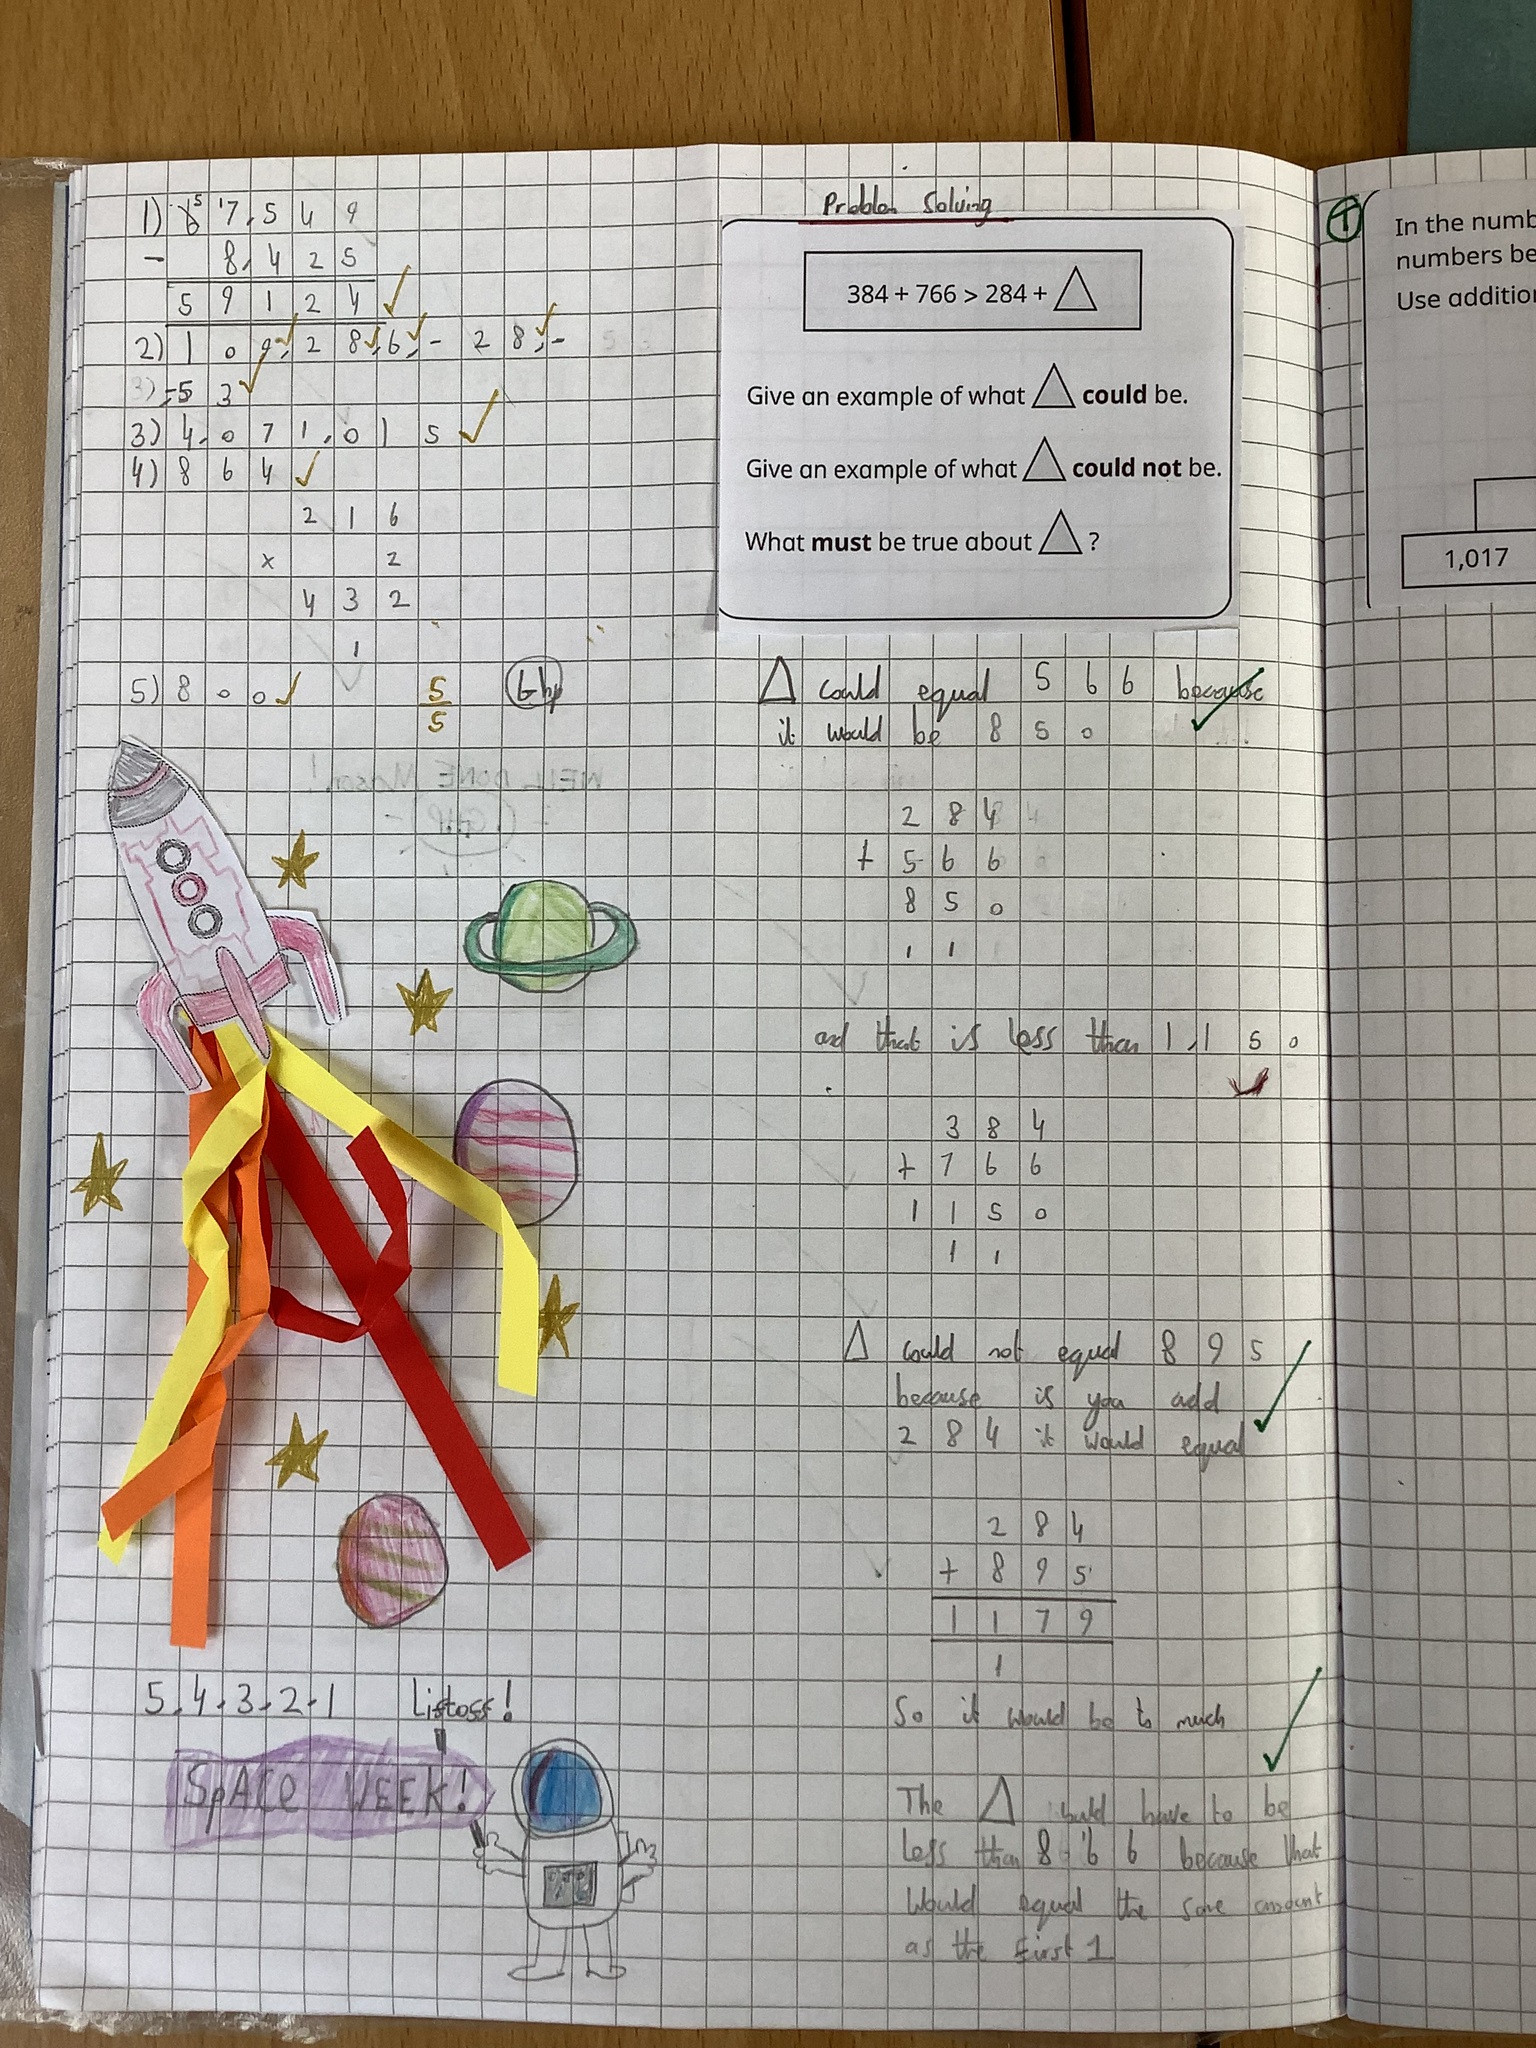 1) 6 5 1 7, 5 4 9
- 8, 4 2 5
5 9 1 2 4
2) 1 0 9, 2 8, 6, - 2 8, -
3) -5 3
3) 4, 0 7 1, 0 1 5
4) 8 6 4
2 1 6
x 2
4 3 2
1
5) 8 0 0
5
5
WELL DONE Mason!
5.4.3.2.1
SpACe WEEK!
Problem Solving
384 + 766 > 284 + △
Give an example of what △ could be.
Give an example of what △ could not be.
What must be true about △ ?
△ could equal 5 6 6 because
it would be 8 5 0
2 8 4
+ 5 6 6
8 5 0
1 1
and that is less than 1,1 5 0
3 8 4
+ 7 6 6
1 1 5 0
1 1
△ could not equal 8 9 5
because is you add
2 8 4 it would equal
2 8 4
+ 8 9 5
1 1 7 9
1
So it would be to much
The △ would have to be
less than 8 6 6 because that
would equal the same amount
as the first 1
In the numb
numbers be
Use additio
1,017